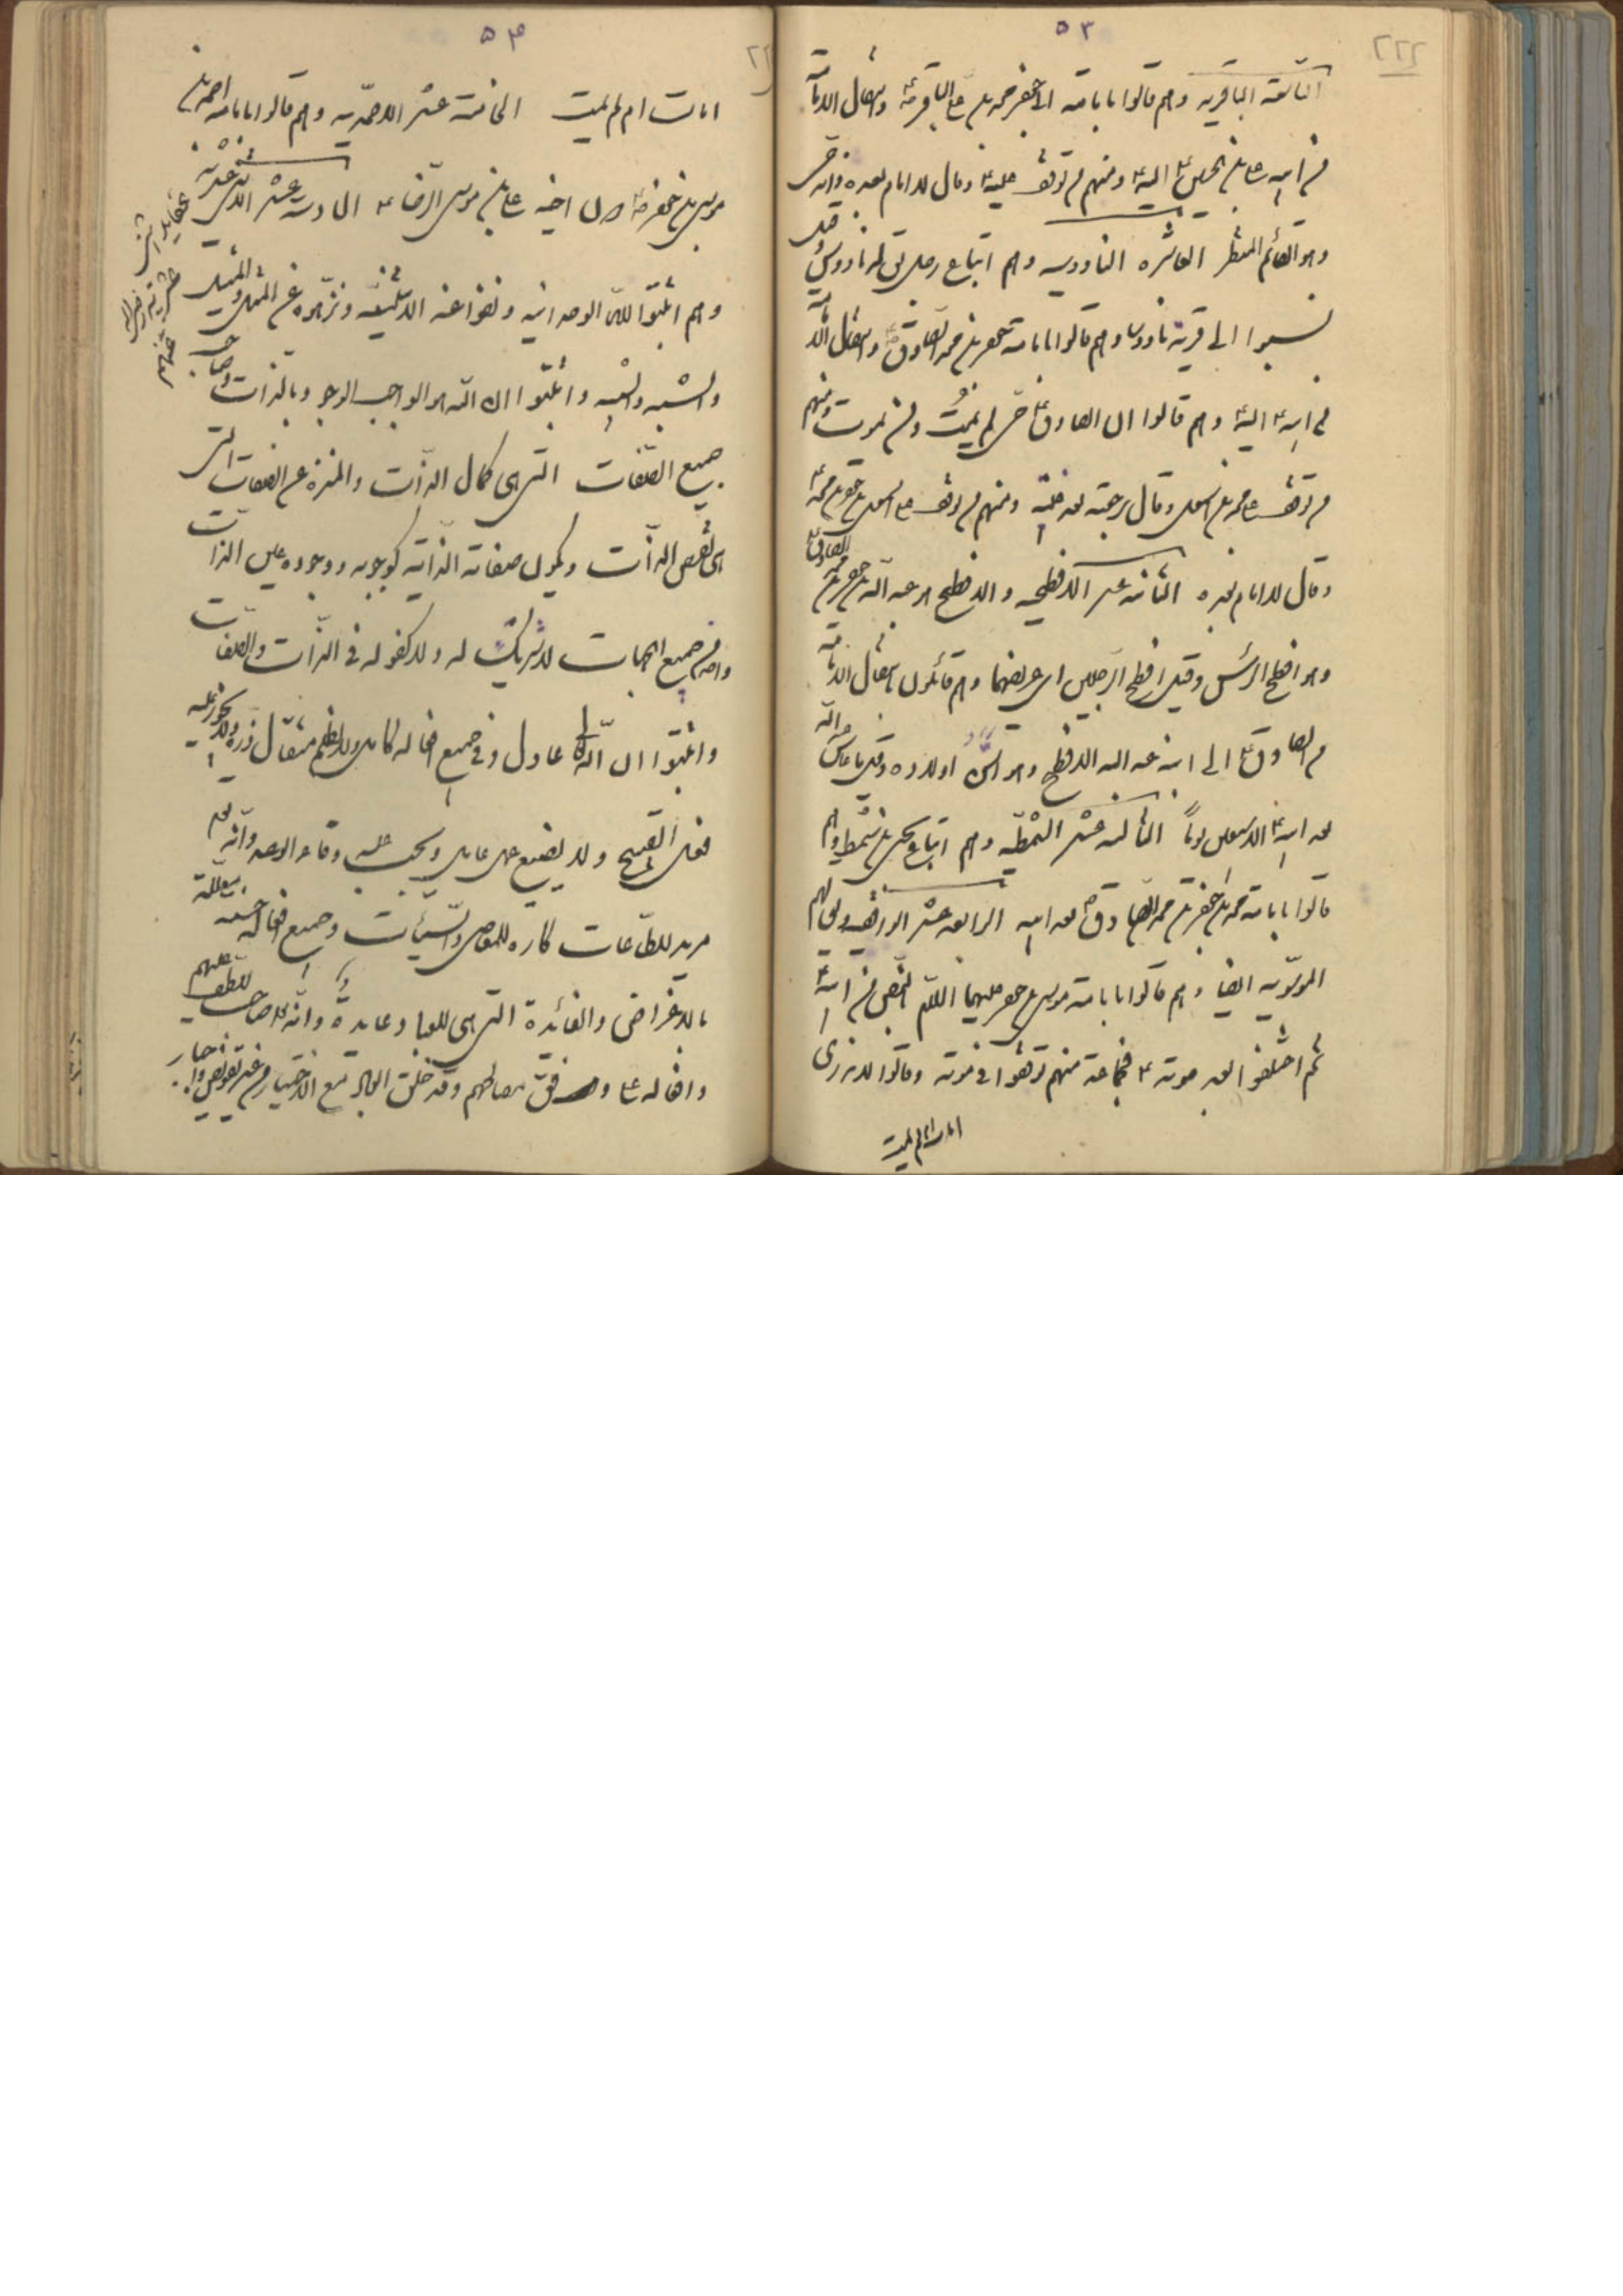 ٥٣
٢٢٢
التاسعة الباقریه وهم قالوا بامامة ابی جعفر محمد بن علی الباقر ع وانتقال الامامة
من ابیه علی بن الحسین ع الیه ع ومنهم من توقف علیه ع وقال لا امام بعده وانه حی
وهو القائم المنتظر العاشره الناووسیه وهم اتباع رجل یق له ناووس وقیل
نسبوا الی قریة ناووسا وهم قالوا بامامة جعفر بن محمد الصادق ع وانتقال الامامة
من ابیه ع الیه ع وهم قالوا ان الصادق ع حی لم یمت ولن یموت ومنهم
من توقف علی محمد بن اسمعیل وقال برجعته بعد غیبته ومنهم من توقف علی اسمعیل بن جعفر بن محمد ع
وقال لا امام بعده الثانیه عشر الافطحیه والافطح هو عبد الله بن جعفر بن محمد الصادق ع
وهو افطح الرأس وقیل افطح الرجلین ای عریضهما وهم قائلون بانتقال الامامة
من الصادق ع الی ابنه عبد الله الافطح وهو اسن اولاده وقیل ما عاش
بعد ابیه ع الا سبعین یوماً الثالثه عشر الشمطیّه وهم اتباع یحیی بن شمیط وهم
قالوا بامامة محمد بن جعفر بن محمد الصادق ع بعد ابیه الرابعه عشر الواقفیه ویق لهم
الموسویه ایضا وهم قالوا بامامة موسی بن جعفر علیهما السلام بالنص من ابیه ع
ثم اختلفوا بعد موته ع فجماعة منهم توقفوا فی موته وقالوا لا ندری
امات ام لم یمت
٥٤
امات ام لم یمت الخامسة عشر الاحمدیه وهم قالوا بامامة احمد بن
موسی بن جعفر ع دون اخیه علی بن موسی الرضا ع السادسة عشر الاثنی عشریة
وهم اثبتوا لله الوحدانیه ونفوا عنه الاثنینیّة ونزّهوه عن المثل والمثیل
والشبه والشبیه واثبتوا ان الله هو الواجب الوجود بالذات وصاحب
جمیع الصفات التی هی کمال الذات والمنزه عن الصفات التی
هی نقص الذات ویکون صفاته الذاتیه کوجوبه ووجوده عین الذات
واحد من جمیع الجهات لا شریک له ولا کفو له فی الذات والصفات
واثبتوا ان الله تعالی عادل وفی جمیع افعاله کامل ولا یظلم مثقال ذره ولا یجوز علیه
فعل القبیح ولا یضیع عمل عامل ویجب علیه وفاء الوعد وانه تع
مرید للطاعات کاره للمعاصی والسیّئات وجمیع افعاله حسنه معلّلة
بالاغراض والفائدة التی هی للعباد عایدة وانه صاحب اللطف علیهم
وافعاله علی وفق مصالحهم وقد خلق العباد مع الاختیار من غیر تفویض واجبار
عقاید اثنی
عشریه